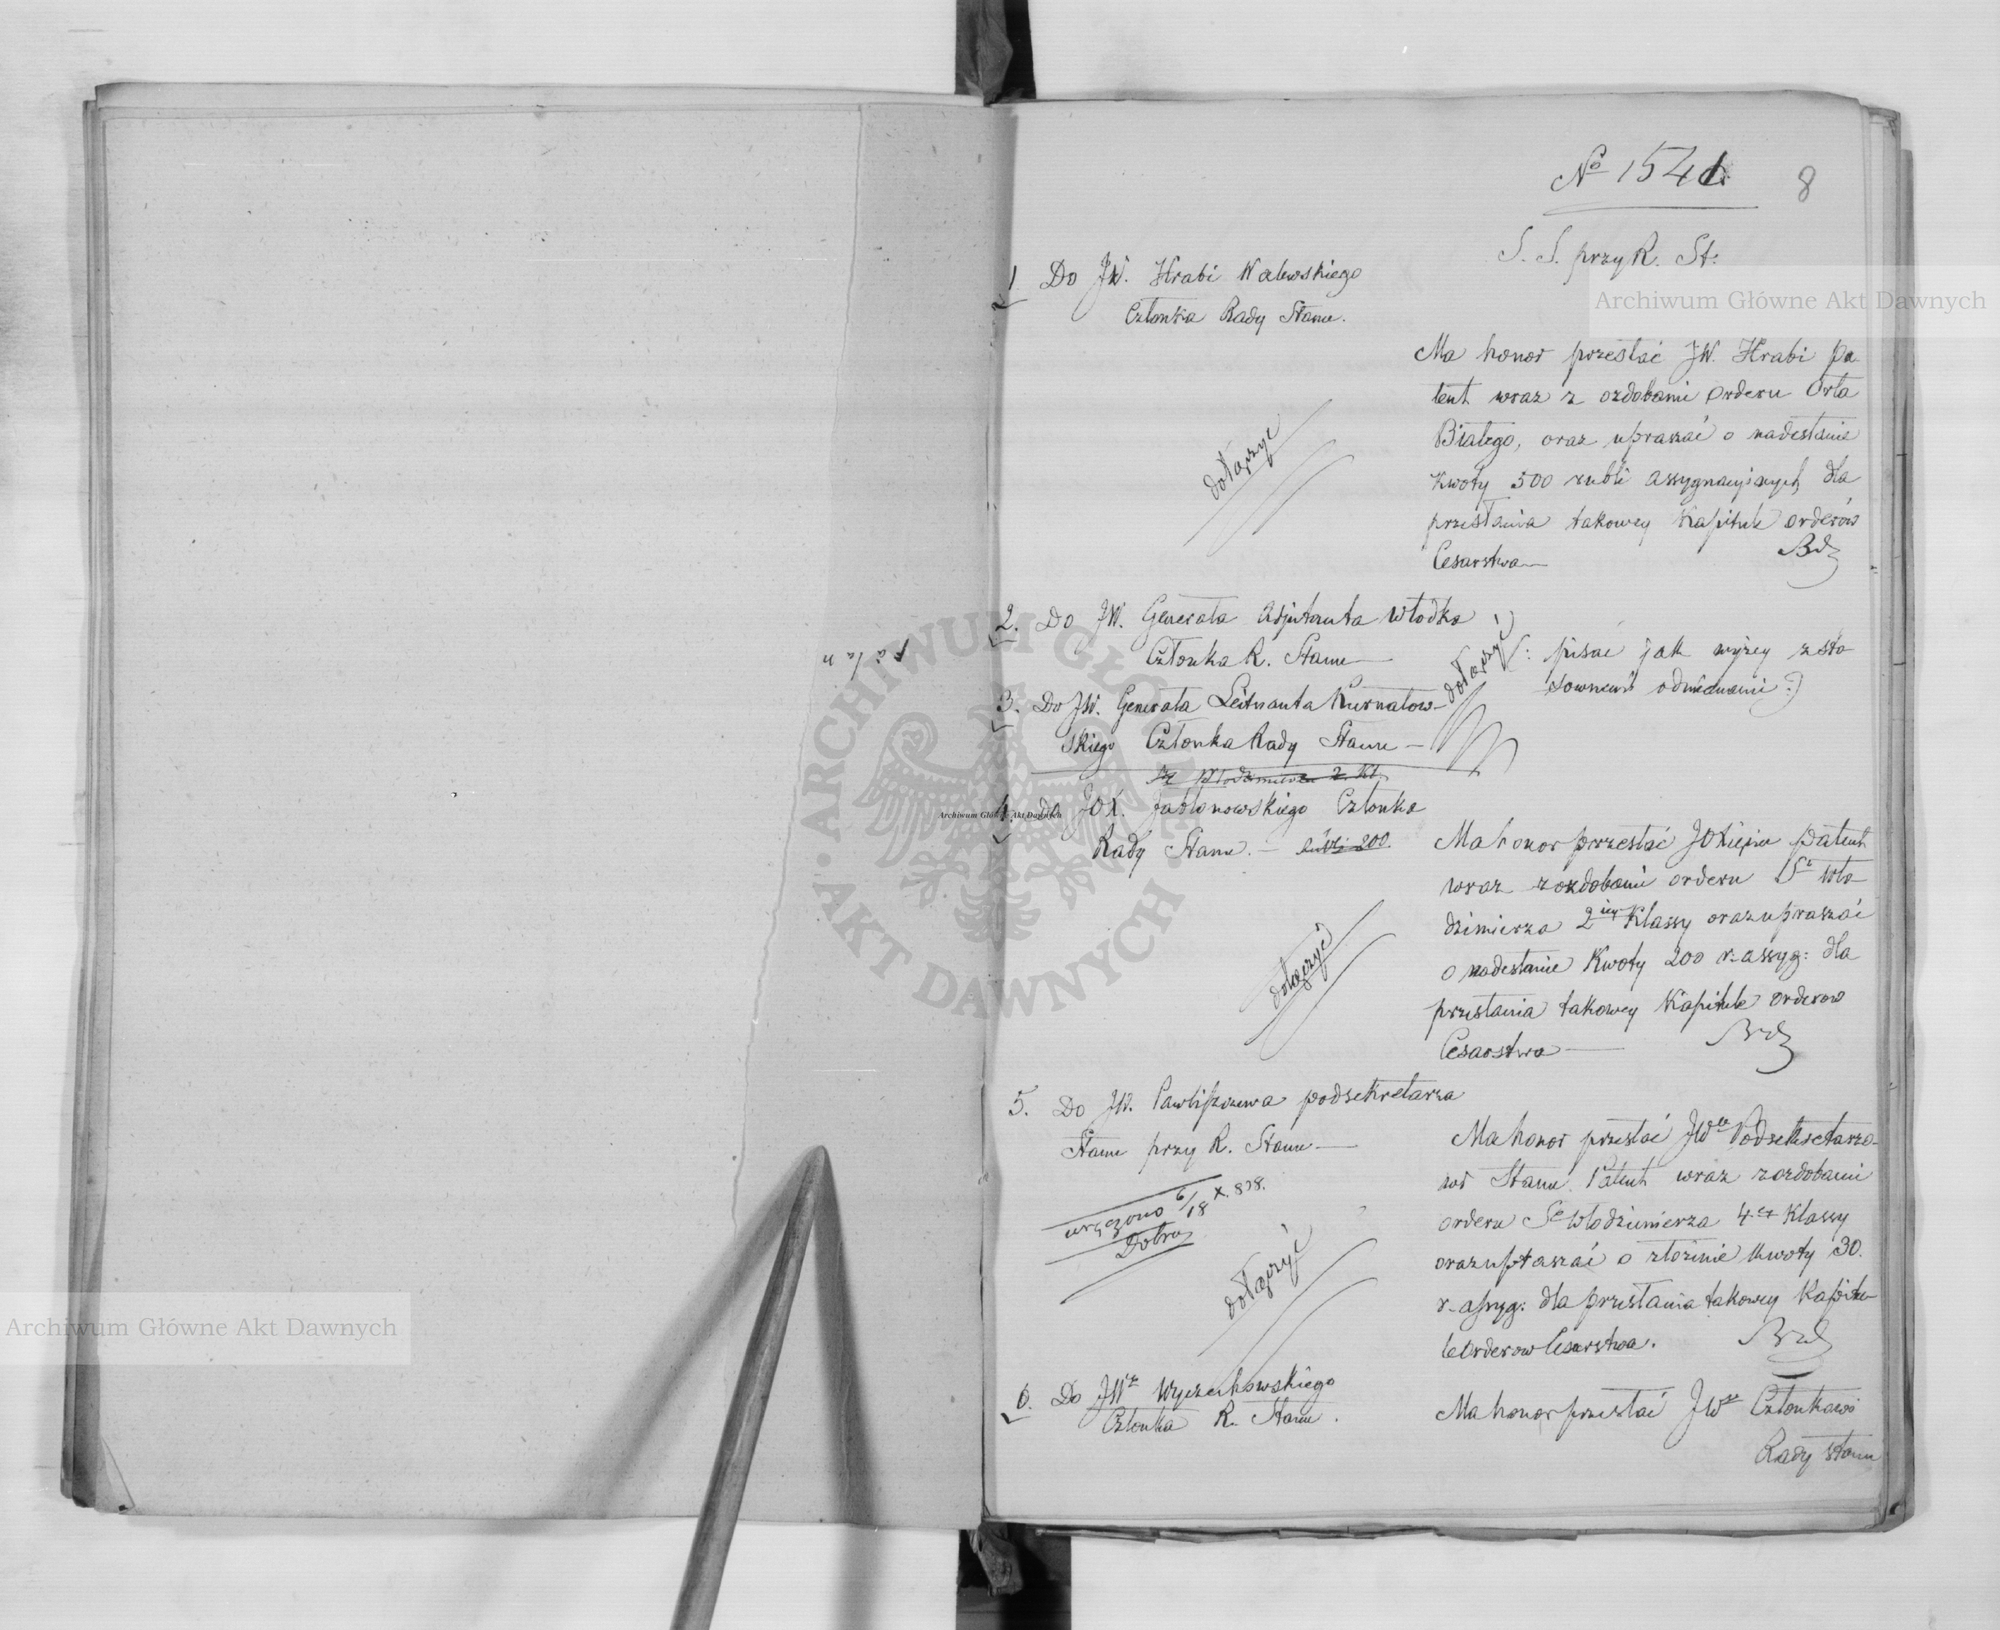 Nº 1541.
8
S. S. przy R. St:
1. Do JW. Hrabi Walewskiego
Członka Rady Stanu.
Ma honor przesłać JW. Hrabi Pa-
tent wraz z ozdobami Orderu Orła
Białego, oraz upraszać o nadesłanie
kwoty 500 rubli assygnacyjnych dla
przesłania takowey Kapitule orderów
Cesarstwa—
dołączyć
2. Do JW. Generała Adjutanta Włodka
Członka R. Stanu—
(: pisać jak wyżey z sto-
sownemi odmianami :)
dołączyć
3. Do JW. Generała Leitnanta Kurnatow-
skiego Członka Rady Stanu —
4. do JOX. Jabłonowskiego Członka
Rady Stanu. — rubli 200.
Ma honor przesłać JOXięciu Patent
wraz z ozdobami orderu Sº Wło-
dzimierza 2iey Klassy oraz upraszać
o nadesłanie Kwoty 200 r. assyg: dla
przesłania takowey Kapitule Orderow
Cesarstwa —
dołączyć
5. Do JW. Pawliszczewa podsekretarza
Stanu przy R. Stanu —
wręczono 6/18 X. 838.
dołączyć
Ma honor przesłać JWu Podsekretarzo-
wi Stanu Patent wraz z ozdobami
orderu Sº Włodzimierza 4ey Klassy
oraz upraszać o złożenie Kwoty 30.
r. assyg: dla przesłania takowey Kapitu-
le Orderow Cesarstwa.
6. Do JWº Wyczechowskiego
Członka R. Stanu.
Ma honor przesłać JWu Członkowi
Rady Stanu
Archiwum Główne Akt Dawnych
Archiwum Główne Akt Dawnych
Archiwum Główne Akt Dawnych
ARCHIWUM GŁÓWNE AKT DAWNYCH